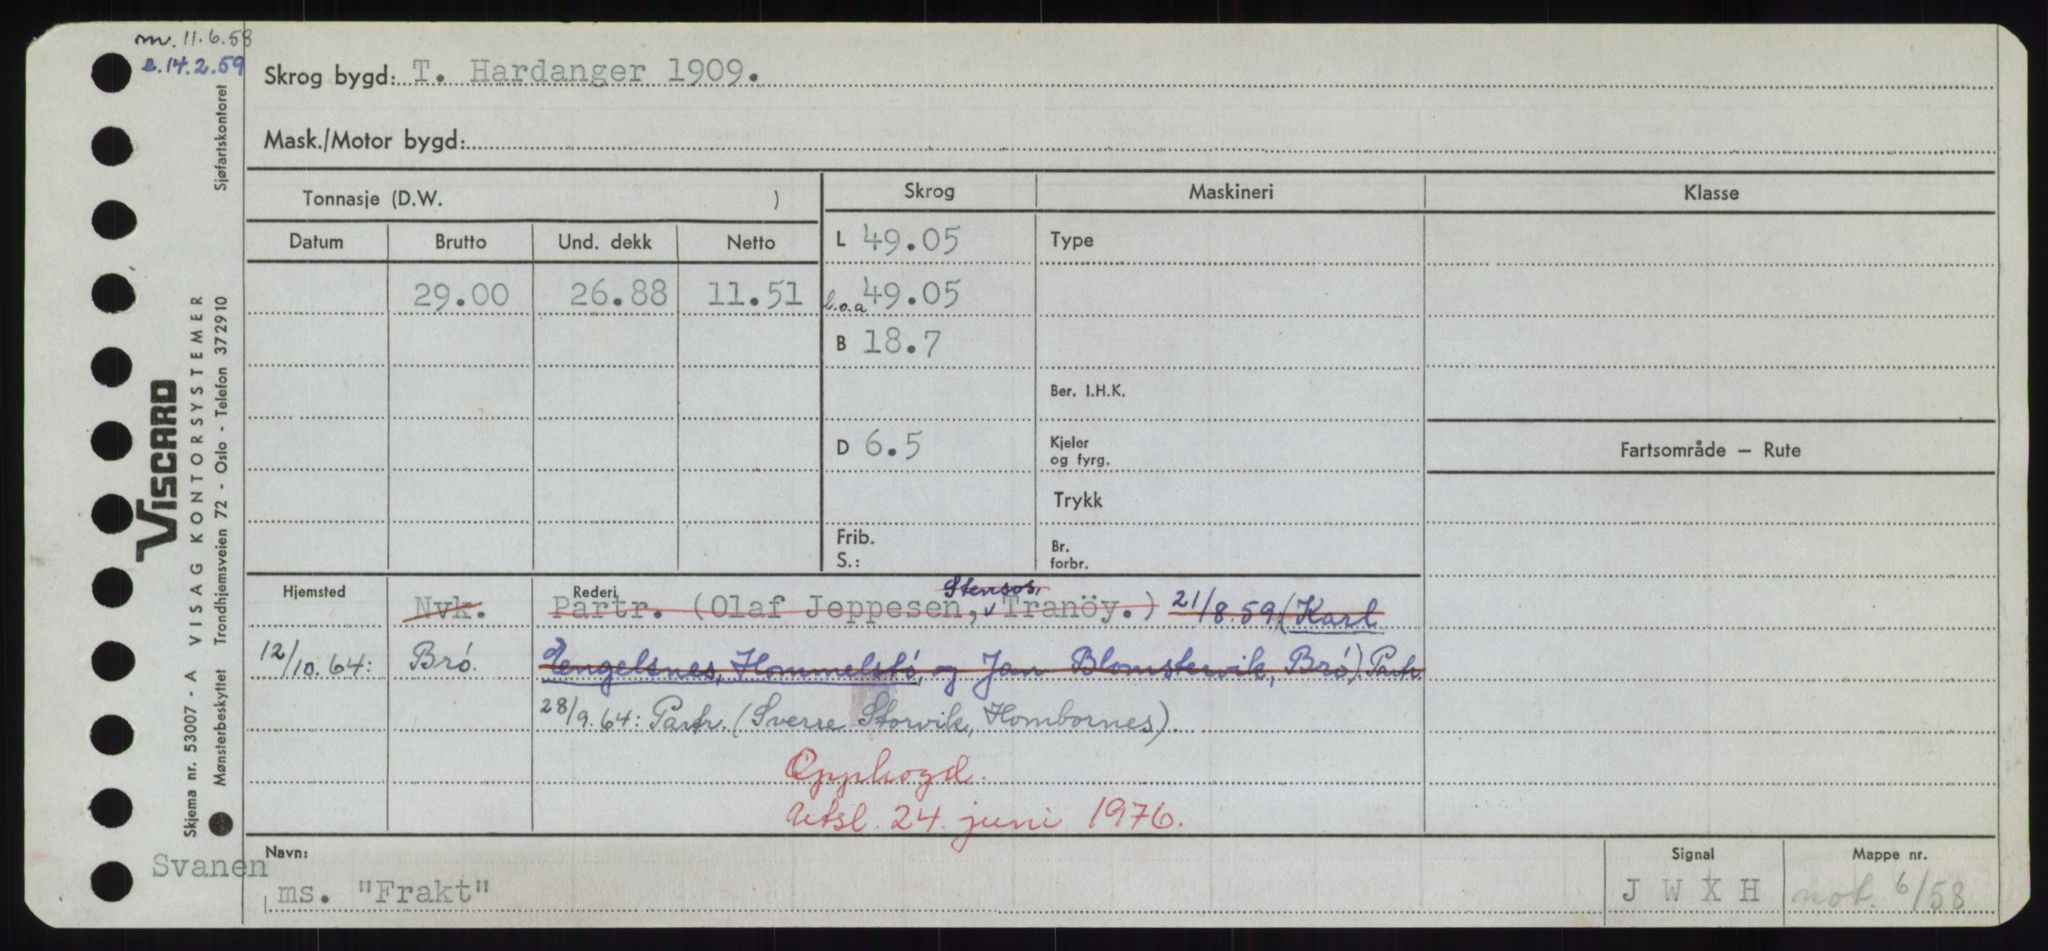 m. 11.6.58
e. 14.2.59
Sjøfartskontoret
Skrog bygd: T. Hardanger 1909.
Mask./Motor bygd:
Tonnasje (D.W. )
Skrog
Maskineri
Klasse
Datum Brutto Und. dekk Netto
L 49.05
Type
29.00 26.88 11.51
l.o.a 49.05
B 18.7
Ber. I.H.K.
D 6.5
Kjeler
og fyrg.
Fartsområde – Rute
Trykk
Frib.
S.:
Br.
forbr.
Hjemsted
Rederi
Stensos,
Nvk. Partr. (Olaf Jeppesen, Tranöy.) 21/8.59: (Karl
12/10.64: Brö. Hommelstö, og Jan Blomstervik, Brö). Partr.
28/9.64: Partr. (Sverre Storvik, Hombornes).
Opphogd.
Utsl. 24. juni 1976.
Navn:
Svanen
ms. "Frakt"
Signal
J W X H
Mappe nr.
not. 6/58
VISCARD
VISAG KONTORSYSTEMER
Trondhjemsveien 72 - Oslo - Telefon 372910
Skjema nr. 53007 - A
Mønsterbeskyttet